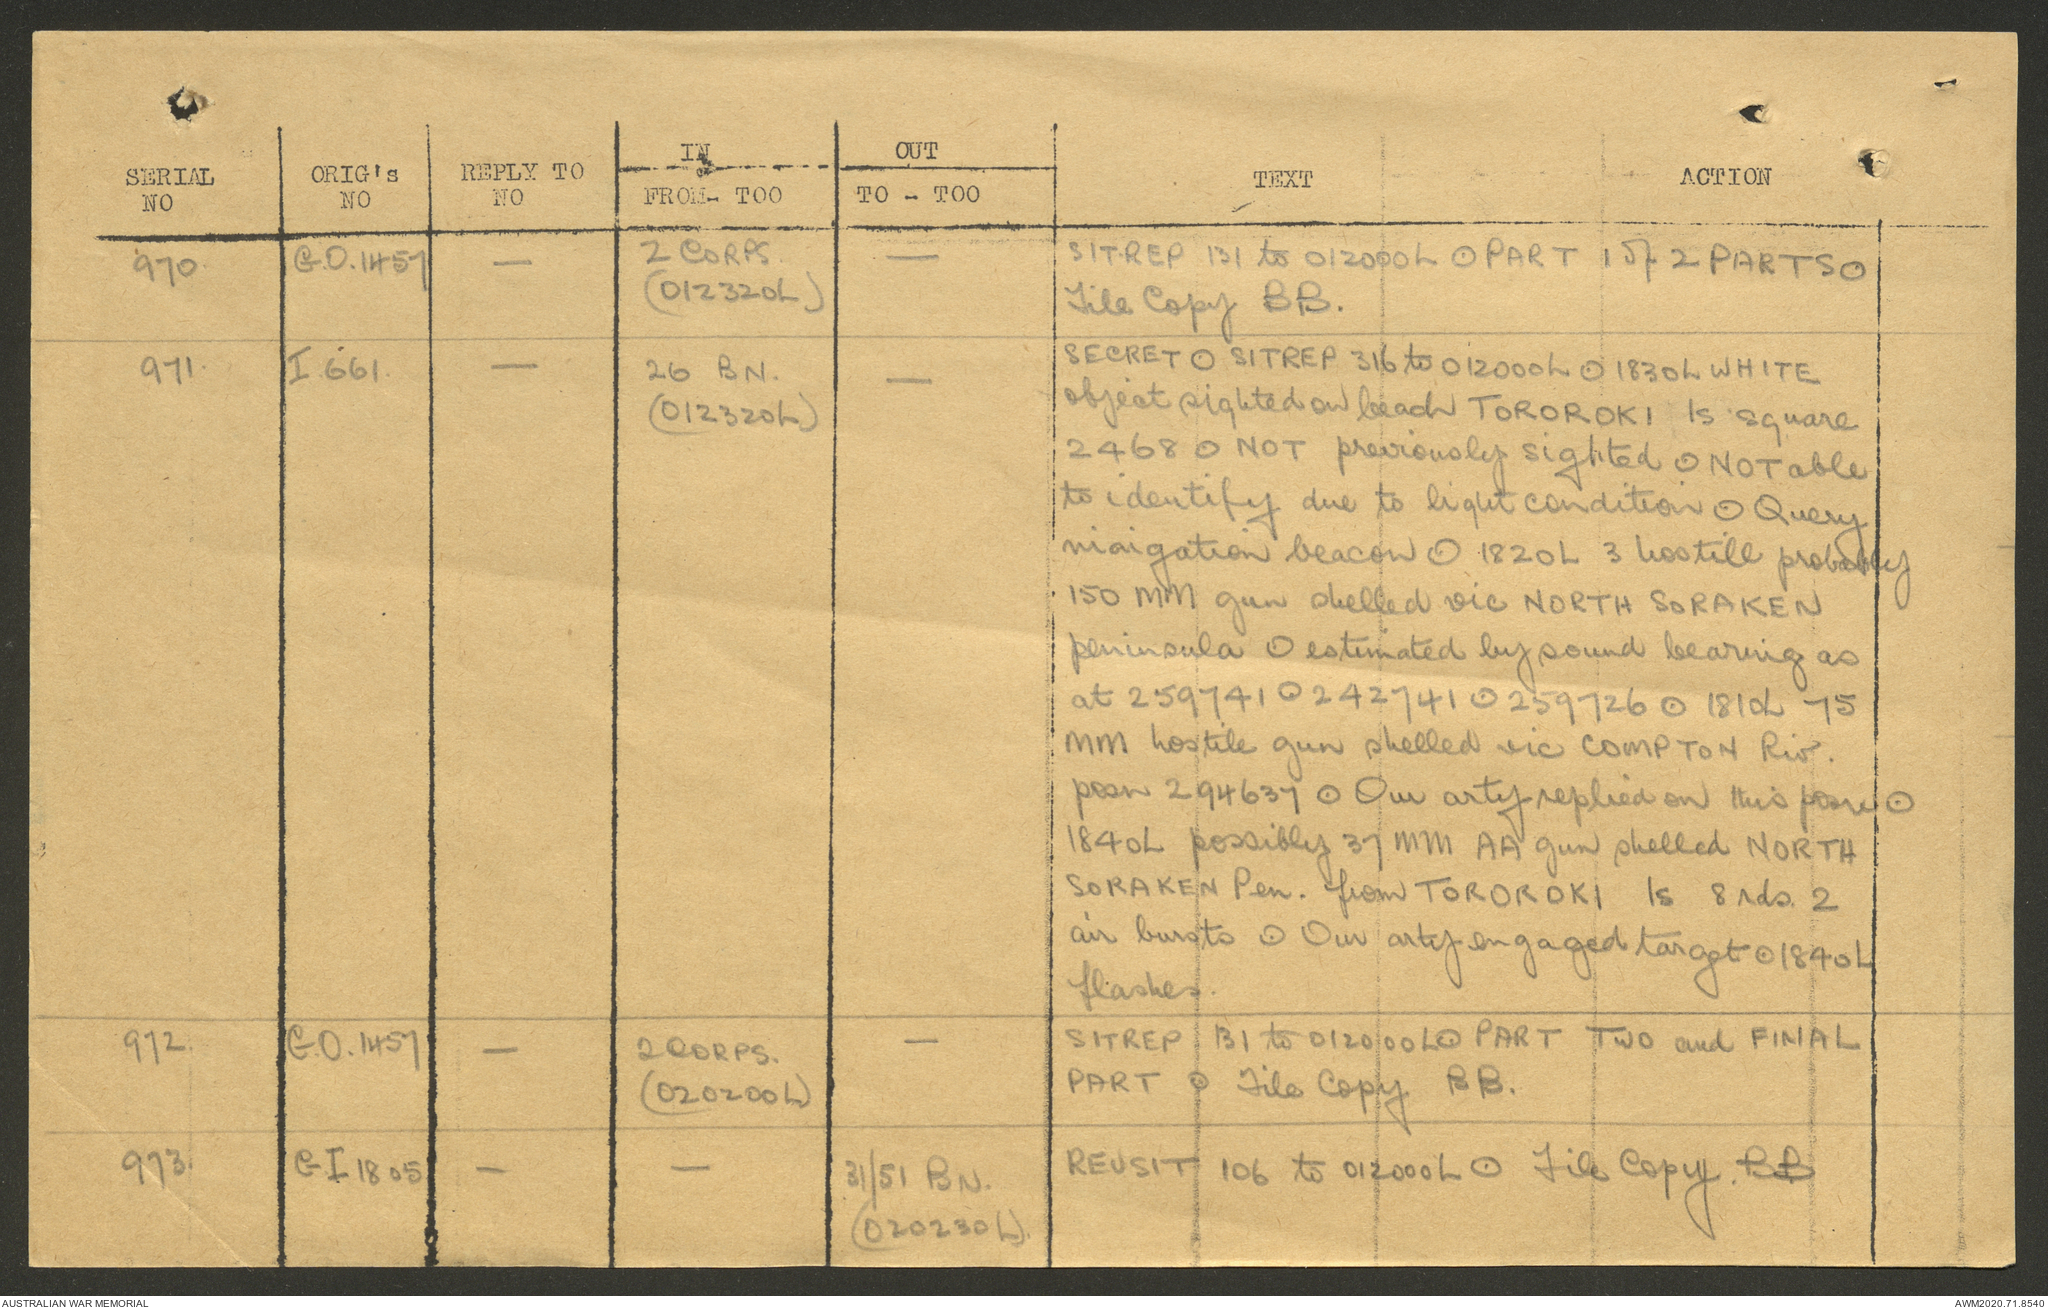 IN OUT
SERIAL NO ORIG's NO REPLY TO NO FROM- TOO TO - TOO TEXT ACTION
970. G.O.1457 — 2 CORPS. (012320L) — SITREP 131 to 012000L ⊙ PART 1 of 2 PARTS ⊙
File Copy BB.
971. I 661. — 26 BN. (012320L) — SECRET ⊙ SITREP 316 to 012000L ⊙ 1830L WHITE
object sighted on beach TOROROKI Is square
2468 ⊙ NOT previously sighted ⊙ NOT able
to identify due to light condition ⊙ Query
niaigation beacon ⊙ 1820L 3 hostill probably
150 MM gun shelled vic NORTH SORAKEN
peninsula ⊙ estimated by sound bearing as
at 259741 ⊙ 242741 ⊙ 259726 ⊙ 1810L 75
MM hostile gun shelled vic COMPTON Riv.
posn 294637 ⊙ Our arty replied on this posn ⊙
1840L possibly 37 MM AA gun shelled NORTH
SORAKEN Pen. from TOROROKI Is 8 rds. 2
air bursts ⊙ Our arty engaged target ⊙ 1840L
flashes.
972. G.O.1457 — 2 CORPS. (020200L) — SITREP 131 to 012000L ⊙ PART TWO and FINAL
PART ⊙ File Copy BB.
973. GI 1805 — — 31/51 BN. (020230L). REUSIT 106 to 012000L ⊙ File Copy. BB
AUSTRALIAN WAR MEMORIAL
AWM2020.71.8540